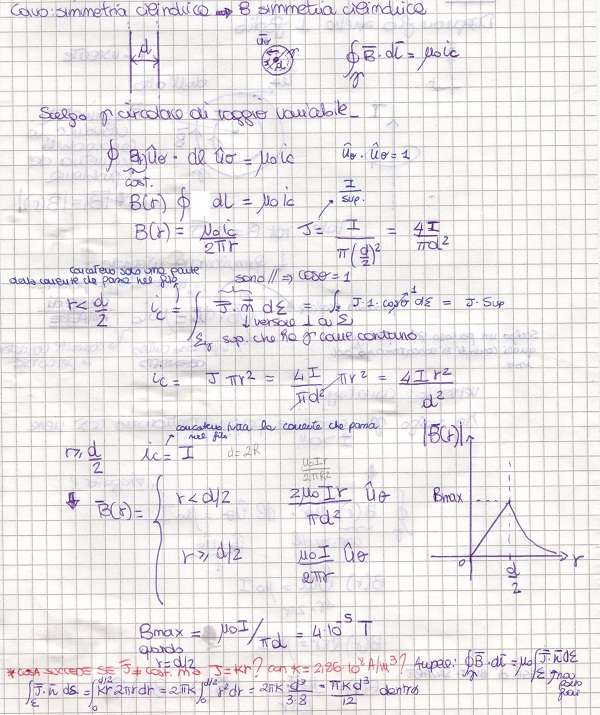 Cavo: simmetria cilindrica → B simmetria cilindrica
d
ûθ
r
∮γ B̄·dl̄ = μ₀ic
Scelgo γ circolare di raggio variabile_
∮ B(r) ûθ · dl ûθ = μ₀ic   ûθ · ûθ = 1
cost.
B(r) ∮ dl = μ₀ic   I/sup.
B(r) = μ₀ic/2πr   J = I/π(d/2)² = 4I/πd²
concateno solo una parte
della corrente che passa nel filo
sono // ⇒ cosθ = 1
r < d/2   ic = ∫ J̄·n̄ dΣ = ∫Σ J·1·cosθ dΣ = J·Sup
1
↓ versore ⊥ a Σ
Σγ sup. che ha γ come contorno
ic = J πr² = 4I/πd² πr² = 4Ir²/d²
concateno tutta la corrente che passa
nel filo
r ≥ d/2   ic = I   d = 2R
μ₀Ir/2πR²
B̄(r) = { r < d/2   2μ₀Ir/πd² ûθ
r ≥ d/2   μ₀I/2πr ûθ
|B̄(r)|
Bmax
0
d/2
r
Bmax = μ₀I/πd = 4·10⁻⁵ T
quando
r = d/2
* COSA SUCCEDE SE J̄ ≠ cost. ma J = kr? con k = 2,86·10² A/m³?
Ampere: ∮γ B̄·dl̄ = μ₀∫Σγ J̄·n̄ dΣ
∫Σ J̄·n̄ dS = ∫₀^(d/2) kr 2πr dr = 2πk ∫₀^(d/2) r² dr = 2πk d³/3·8 = πkd³/12 dentro